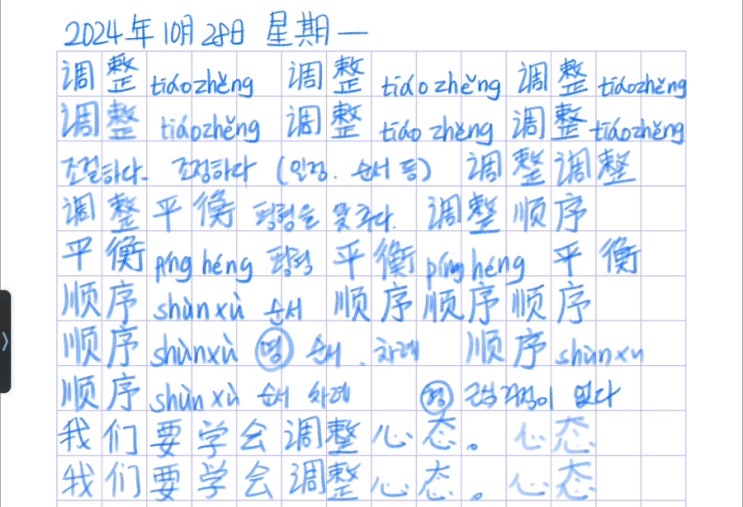 2024年10月28日 星期一
调整 tiáozhěng 调整 tiáozhěng 调整 tiáozhěng
调整 tiáozhěng 调整 tiáozhěng 调整 tiáozhěng
조절하다. 조정하다 (일정. 순서 등) 调整调整
调整平衡 평형을 맞추다. 调整顺序
平衡 píng héng 평형 平衡 píng héng 平衡
顺序 shùnxù 순서 顺序顺序顺序
顺序 shùnxù 명 순서. 차례 顺序 shùnxu
顺序 shùn xù 순서 차례 형 걱정이 없다
我们要学会调整心态。心态
我们要学会调整心态。心态